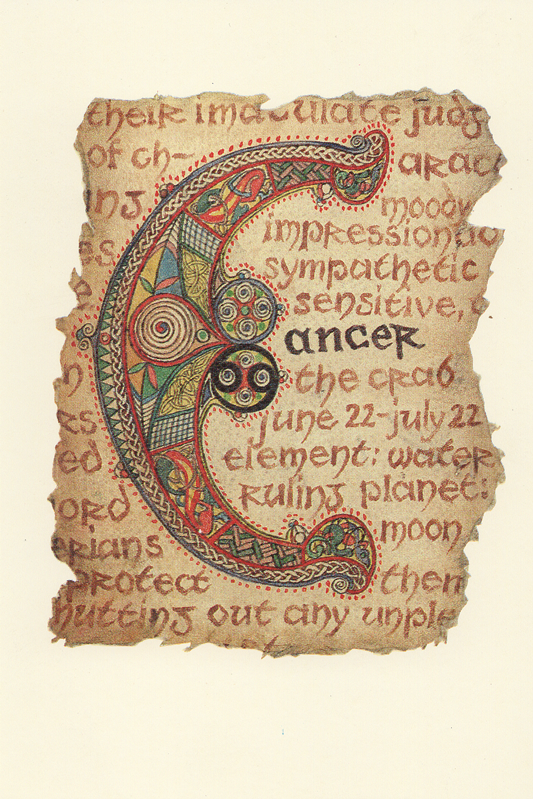 their imaculate judg
of ch- arac
ing moody
impressiona
es sympathetic
e sensitive,
Cancer
n the crab
rs june 22-july 22
ed element: water
ord ruling planet:
erians moon
protect them
hutting out any unple